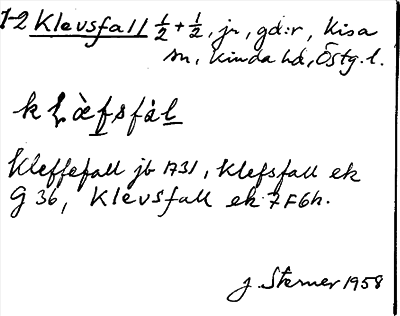 1-2 Klevsfall ½ + ½, jr, gd:r, Kisa
sn, Kinda hd, Östg. l.
k l̥ ὰ f s f ȧ l
Kleffefall jb 1731, Klefsfall ek
G 36, Klevsfall ek 7F6h.
J. Sterner 1958